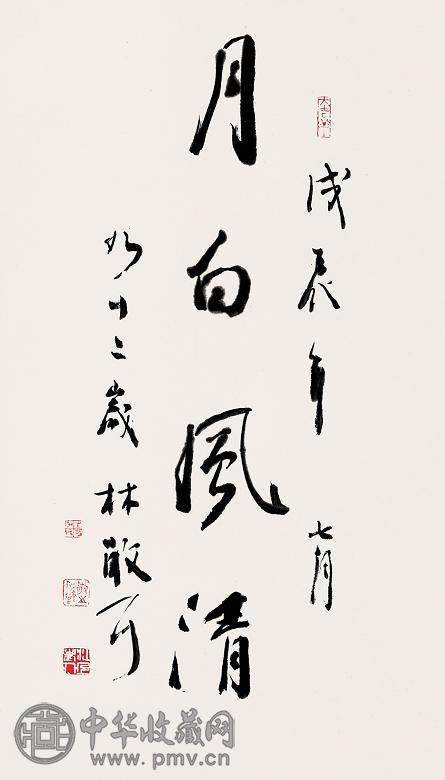 戊辰年 七月
月白風清
九十二歲 林散耳
中华收藏网
www.pmv.cn